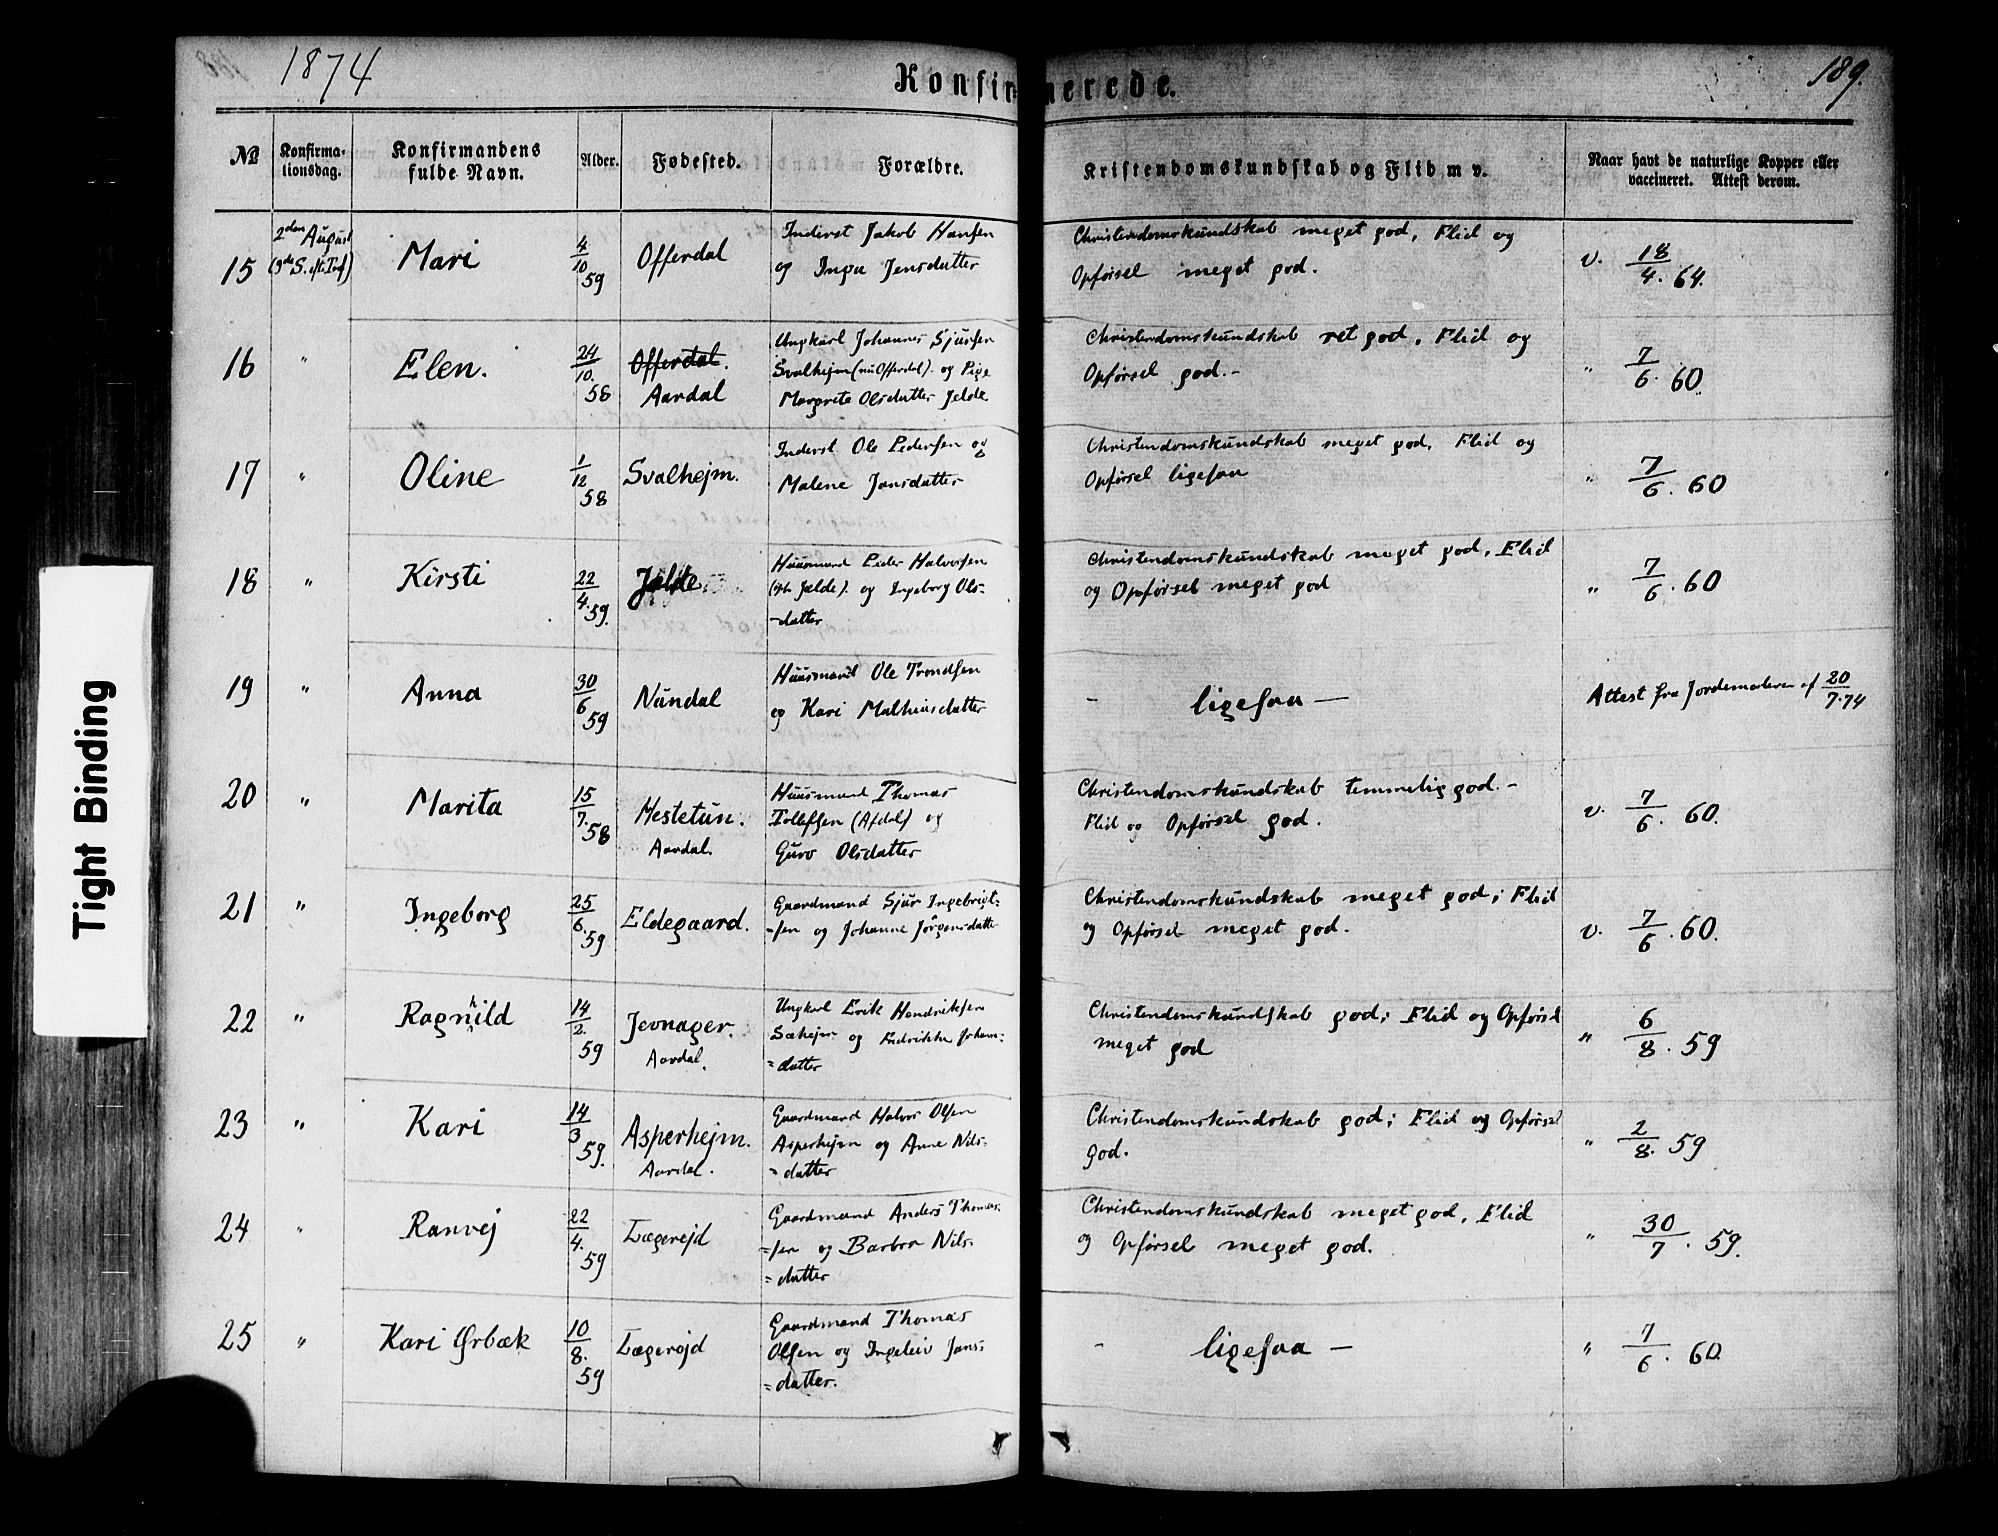 1874
Konfirmerede.
189.
Tight Binding
№ Konfirma-tionsdag. Konfirmandens fulde Navn. Alder. Fødested. Forældre. Kristendomskundskab og Flid m v. Naar havt de naturlige Kopper eller vaccineret. Attest derom.
15 2den August (9de S. eft. Tref.) Mari 4/10 59 Offerdal Inderst Jakob Hansen
og Inga Jensdatter
Christendomskundskab meget god, Flid og
Opførsel meget god.
v. 18/4. 64.
16 " Elen. 24/10. 58 Offerdal. Aardal Ungkarl Johannes Sjursen
Svalhejm (nu Offerdal). og Pige
Margrete Olsdatter Jelde
Christendomskundskab ret god, Flid og
Opførsel god.-
" 7/6. 60
17 " Oline 1/12 58 Svalhejm. Inderst Ole Pedersen og
Malene Jansdatter
Christendomskundskab meget god, Flid og
Opførsel ligesaa
" 7/6. 60
18 " Kirsti 22/4. 59. Jelde Huusmand Peder Halvorsen
Jælde). og Ingeborg Ols-
-datter
Christendomskundskab meget god, Flid
og Opførsel meget god
" 7/6. 60
19 " Anna 30/6 59 Nundal Huusmand Ole Trondsen
og Kari Mathiasdatter
- ligesaa -
Attest fra Jordemoderen af 20/7.74
20 " Marita 15/7. 58 Hestetun. Aardal. Huusmand Thomas
Tollefsen (Afdal) og
Guro Olsdatter
Christendomskundskab temmelig god.-
Flid og Opførsel god.
v. 7/6. 60.
21 " Ingeborg 25/6. 59 Eldegaard. Gaardmand Sjur Ingebrigt-
-sen og Johanne Jörgensdatter
Christendomskundskab meget god; Flid
og Opførsel meget god.
v. 7/6. 60.
22 " Ragnhild 14/2. 59 Jevnager. Aardal. Ungkarl Erik Hendriksen
Sæhejm og Fredrikke Johann-
=datter
Christendomskundskab god; Flid og Opførsel
meget god
" 6/8. 59
23 " Kari 14/3 59. Asperhejm. Aardal. Gaardmand Halvor Olsen
Asperhejm og Anne Nils-
=datter
Christendomskundskab god; Flid og Opførsel
god.
" 2/8. 59
24 " Ranvej 22/4. 59 Lægrejd Gaardmand Anders Thomas-
=sen og Barbro Nils-
=datter
Christendomskundskab meget god, Flid
og Opførsel meget god.
" 30/7. 59.
25 " Kari Ørbæk 10/8. 59 Lægrejd Gaardmand Thomas
Olsen og Ingeleiv Jans-
=datter.
- ligesaa -
" 7/6. 60.